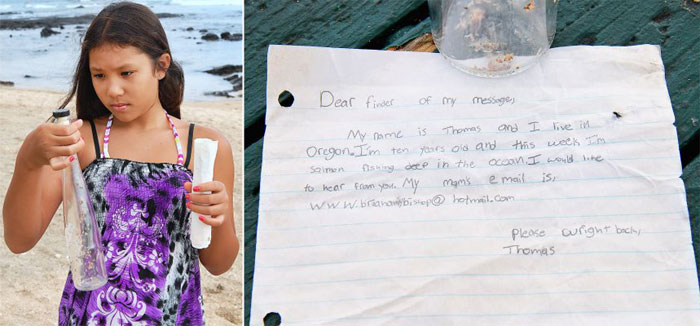 Dear finder of my message,
My name is Thomas and I live in
Oregon. I'm ten years old and this week I'm
salmon fishing deep in the ocean. I would like
to hear from you. My mom's e mail is,
www.brianandybishop@hotmail.com
Please wright back,
Thomas